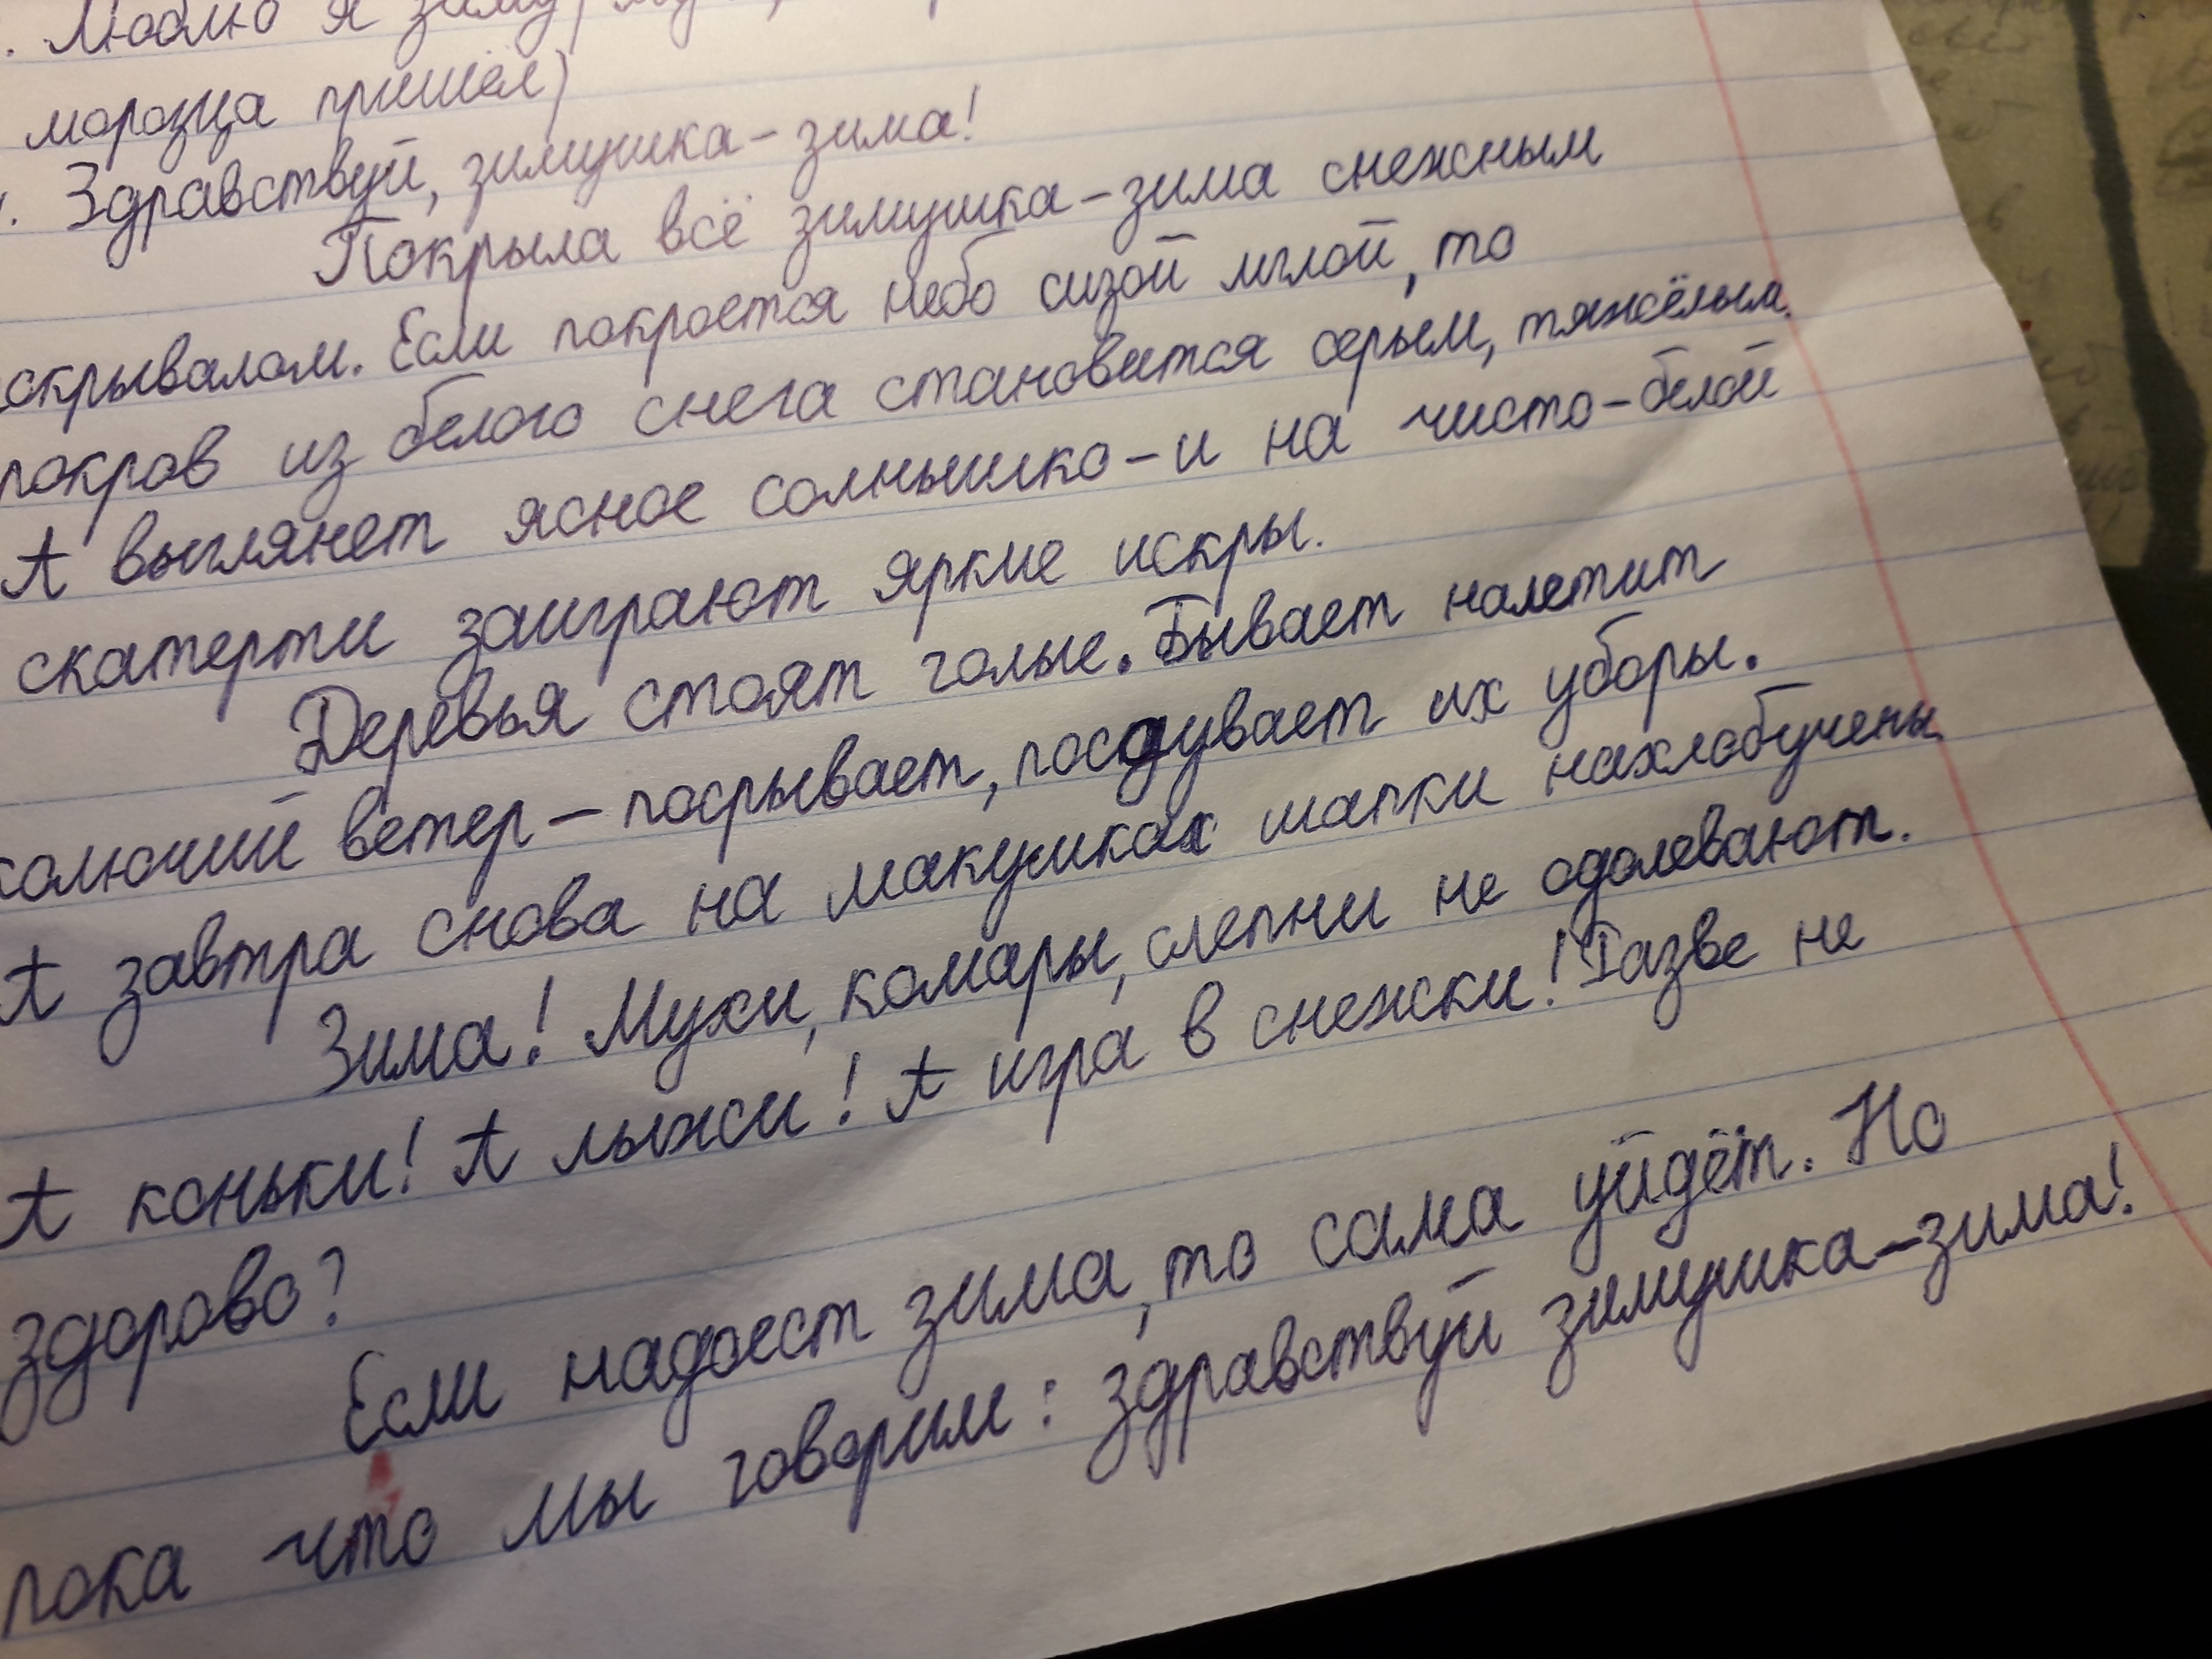 . Люблю я зиму
морозца пришёл)
. Здравствуй, зимушка-зима!
Покрыла всё зимушка-зима снежным
окрывалом. Если покроется небо сизой мглой, то
покров из белого снега становится серым, тяжёлым.
А выглянет ясное солнышко - и на чисто-белой
скатерти заиграют яркие искры.
Деревья стоят голые. Бывает налетит
колючий ветер - посрывает, посдувает их уборы.
А завтра снова на макушках шапки нахлобучены
Зима! Мухи, комары, слепни не одолевают.
А коньки! А лыжи! А игра в снежки! Разве не
здорово?
Если надоест зима, то сама уйдёт. Но
пока что мы говорим: здравствуй зимушка-зима!